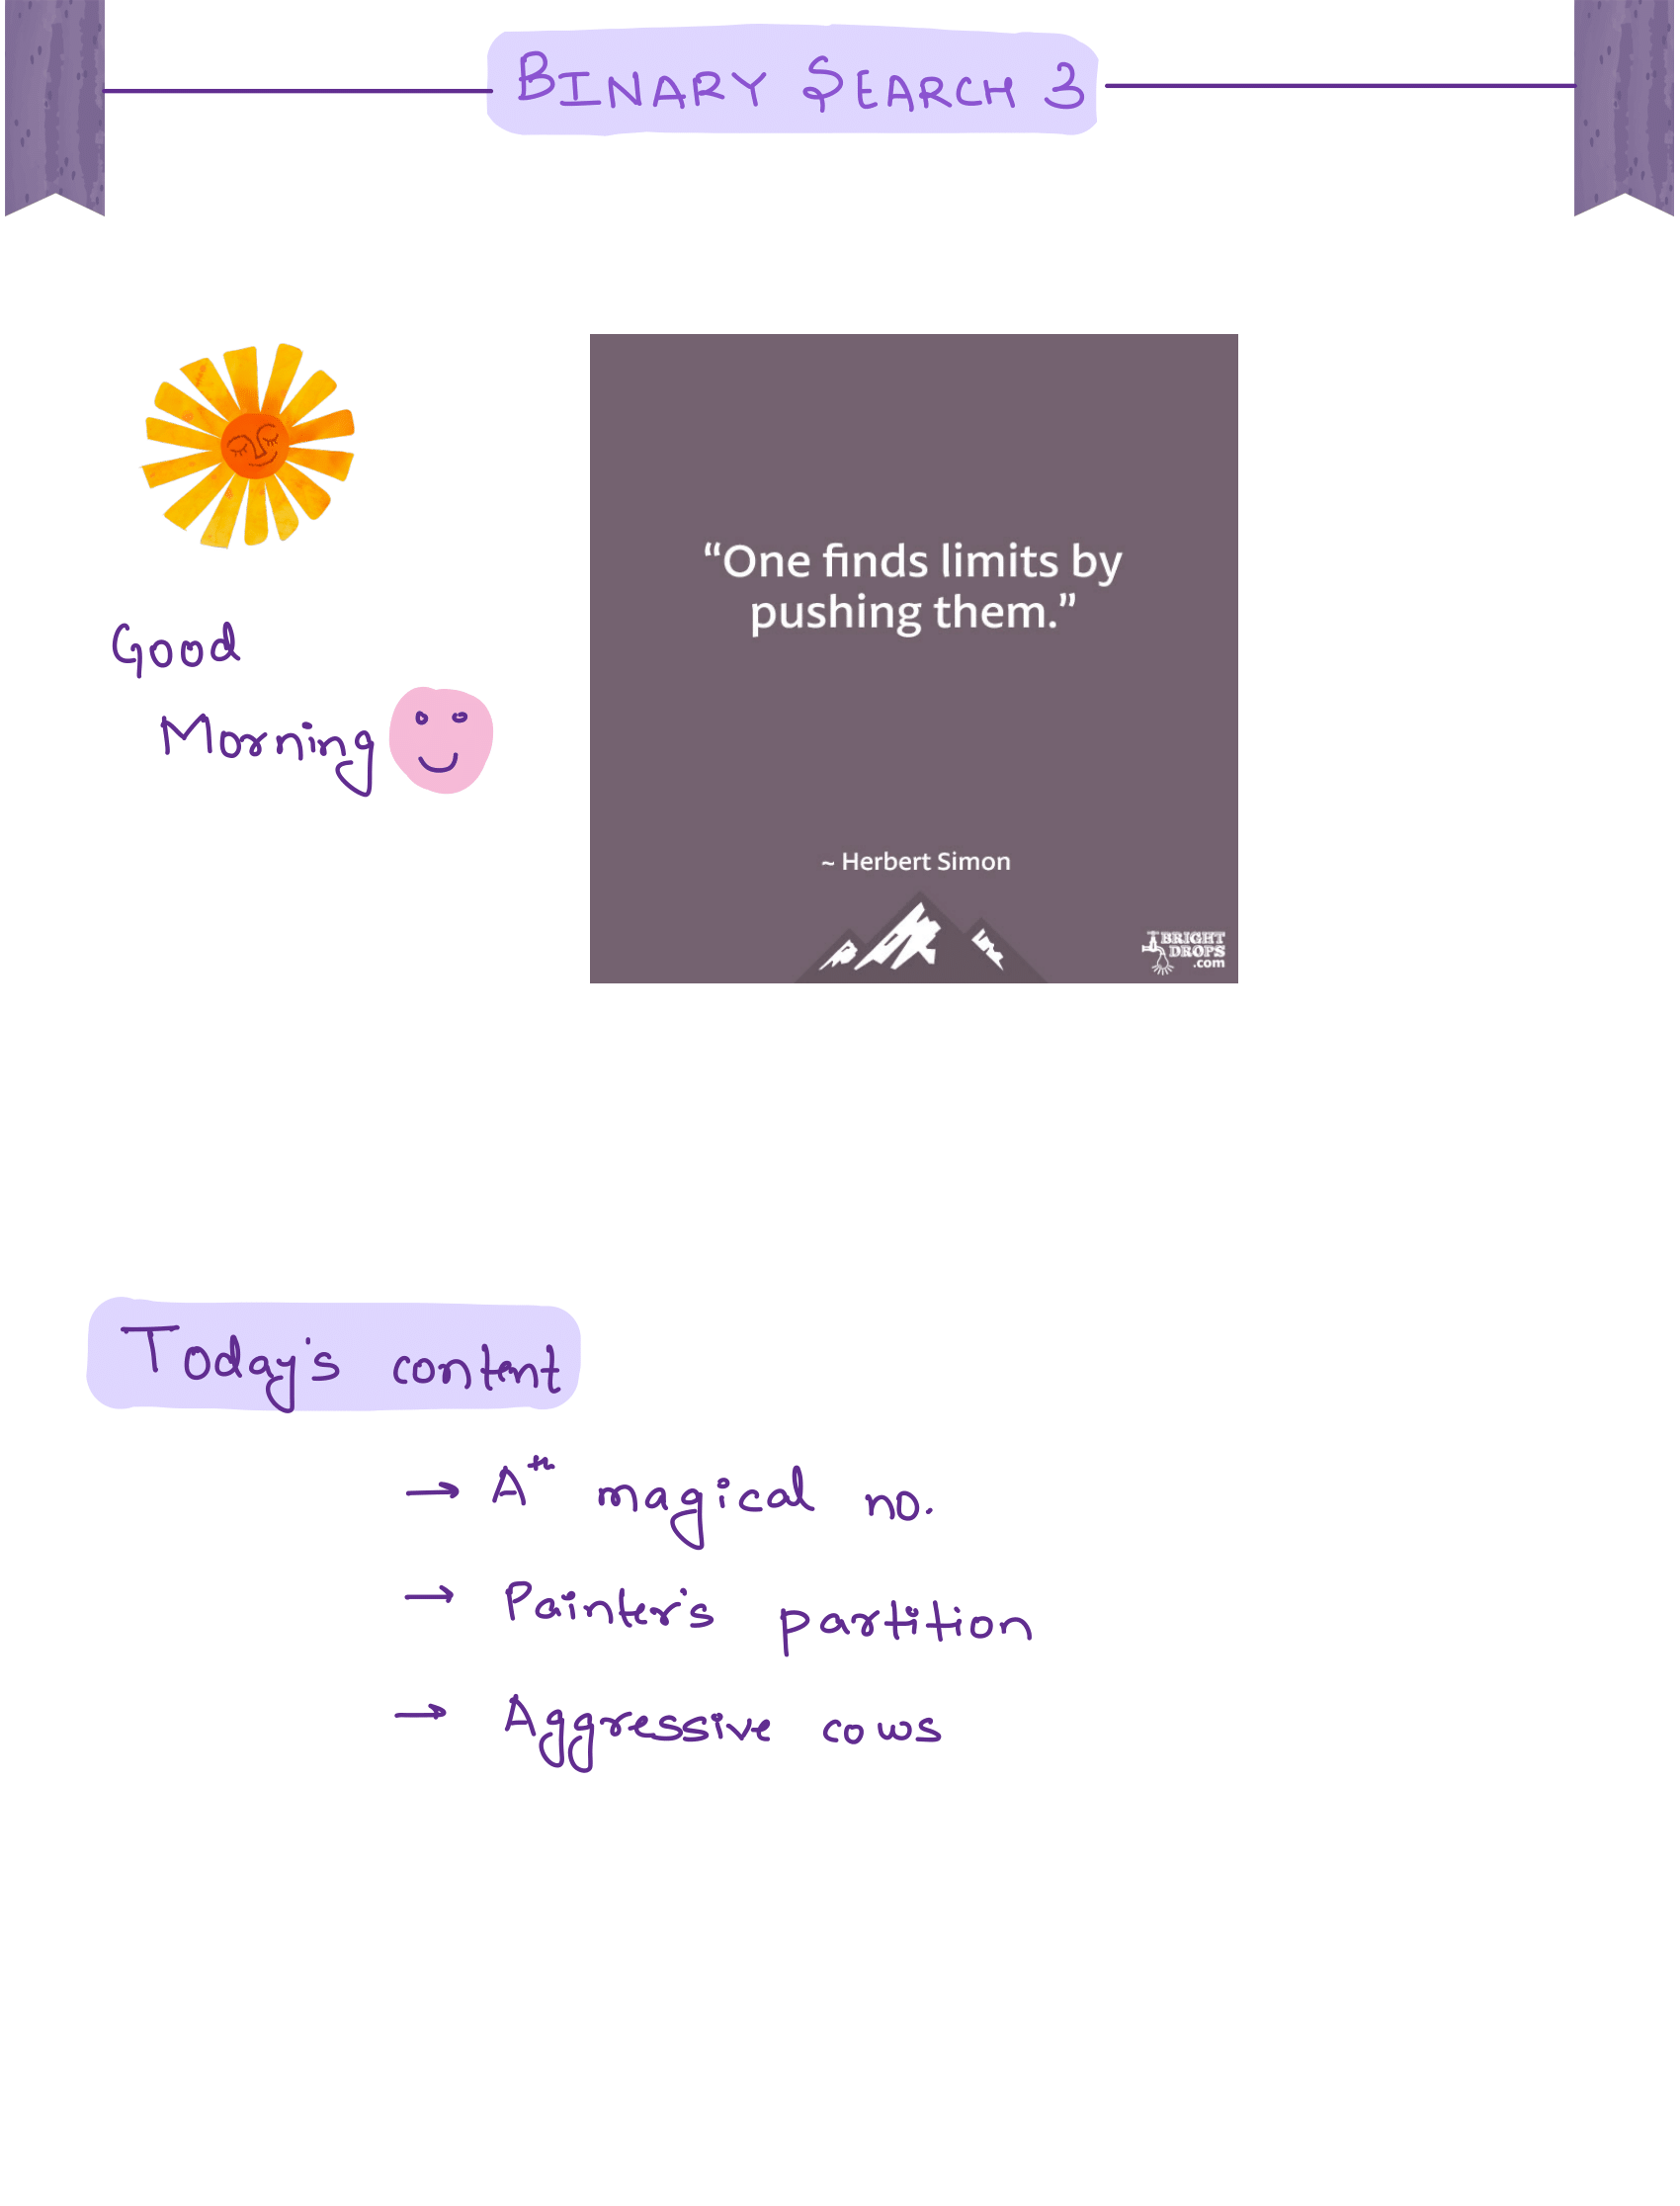 BINARY SEARCH 3
Good
Morning
“One finds limits by
pushing them.”
~ Herbert Simon
BRIGHT
DROPS
.com
Today's content
→ Aᵗʰ magical no.
→ Painter's partition
→ Aggressive cows